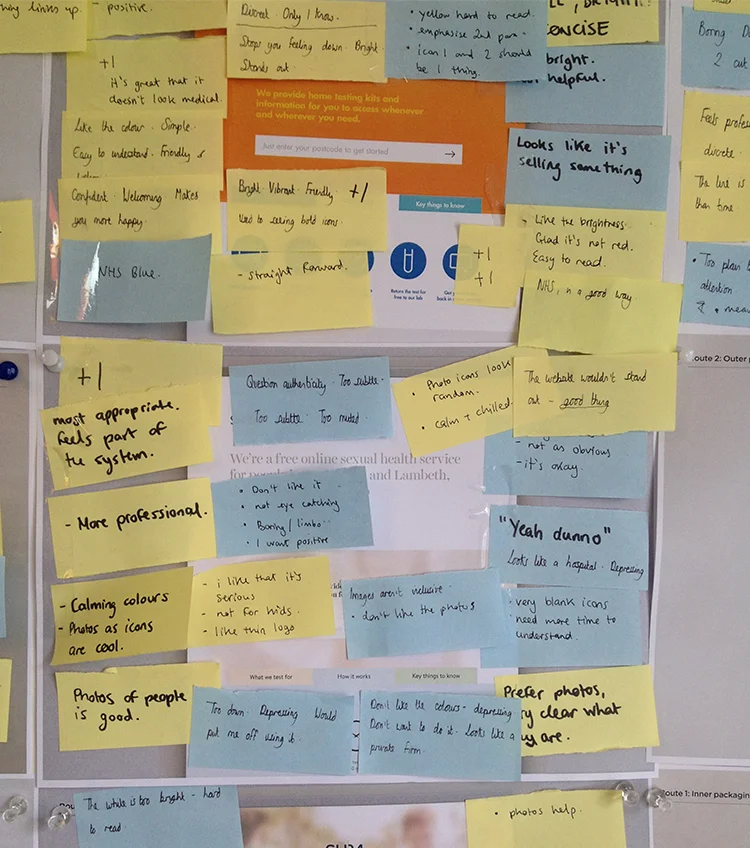 lines up.
- positive.
Discreet - Only I know.
Stops you feeling down - Bright
Stands out.
• yellow hard to read.
• emphasise 2nd para -
• icon 1 and 2 should
be 1 thing.
CONCISE
bright.
helpful.
Boring
2 out
+1
It's great that it
doesn't look medical.
We provide home testing kits and
information for you to access whenever
and wherever you need.
Just enter your postcode to get started
Like the colour - Simple -
Easy to understand. Friendly &
Looks like it's
selling something
Feels profess
discrete -
The line is
than time
Confident - Welcoming Makes
you more happy.
Bright - Vibrant - Friendly - +1
Used to seeing bold icons.
Key things to know
- Like the brightness.
Glad it's not red.
Easy to read.
NHS Blue.
- straight forward.
Return the test for
free to our lab
back in
+1
+1
NHS, in a good way
• Too plain
attention
+1
most appropriate.
feels part of
the system.
Question authenticity - Too subtle -
Too subtle - Too muted -
• Photo icons look
random.
• calm + chilled
The website wouldn't stand
out - good thing
Route 2: Outer
We're a free online sexual health service
and Lambeth,
- not as obvious
- it's okay.
- More professional.
• Don't like it
• not eye catching
• Boring / limbo
• I want positive
"Yeah dunno"
Looks like a hospital - Depressing
- Calming colours
- Photos as icons
are cool.
- i like that it's
serious
- not for kids.
- like thin logo
Images aren't inclusive -
• don't like the photos
- very blank icons
need more time to
understand.
Photos of people
is good.
What we test for
How it works
Key things to know
Too down - Depressing Would
put me off using it.
Don't like the colours - depressing
Don't want to do it - Looks like a
private firm.
Prefer photos,
clear what
are.
The white is too bright - hard
to read
• photos help.
Route 1: Inner packaging